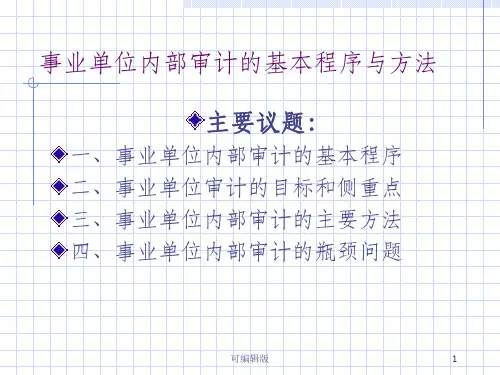 事业单位内部审计的基本程序与方法
主要议题:
一、事业单位内部审计的基本程序
二、事业单位审计的目标和侧重点
三、事业单位内部审计的主要方法
四、事业单位内部审计的瓶颈问题
可编辑版
1